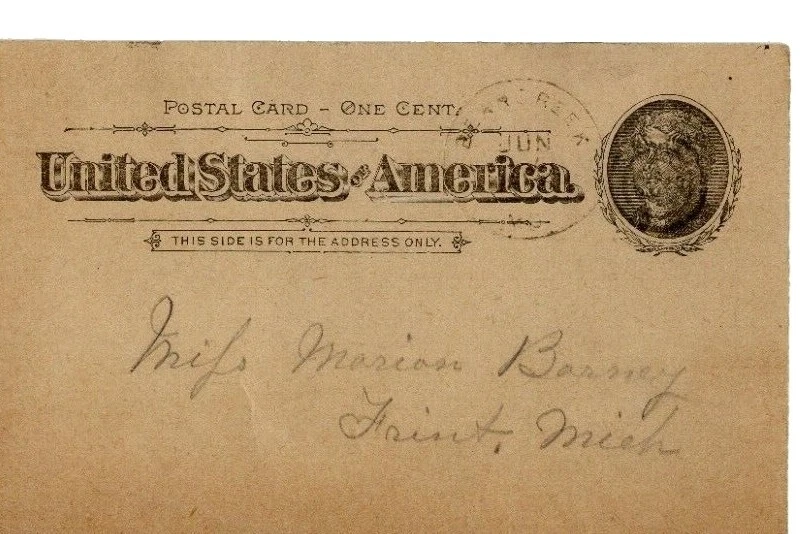 POSTAL CARD – ONE CENT.
JUN
United States of America.
THIS SIDE IS FOR THE ADDRESS ONLY.
Miss Marion Barney
Frint, Mich